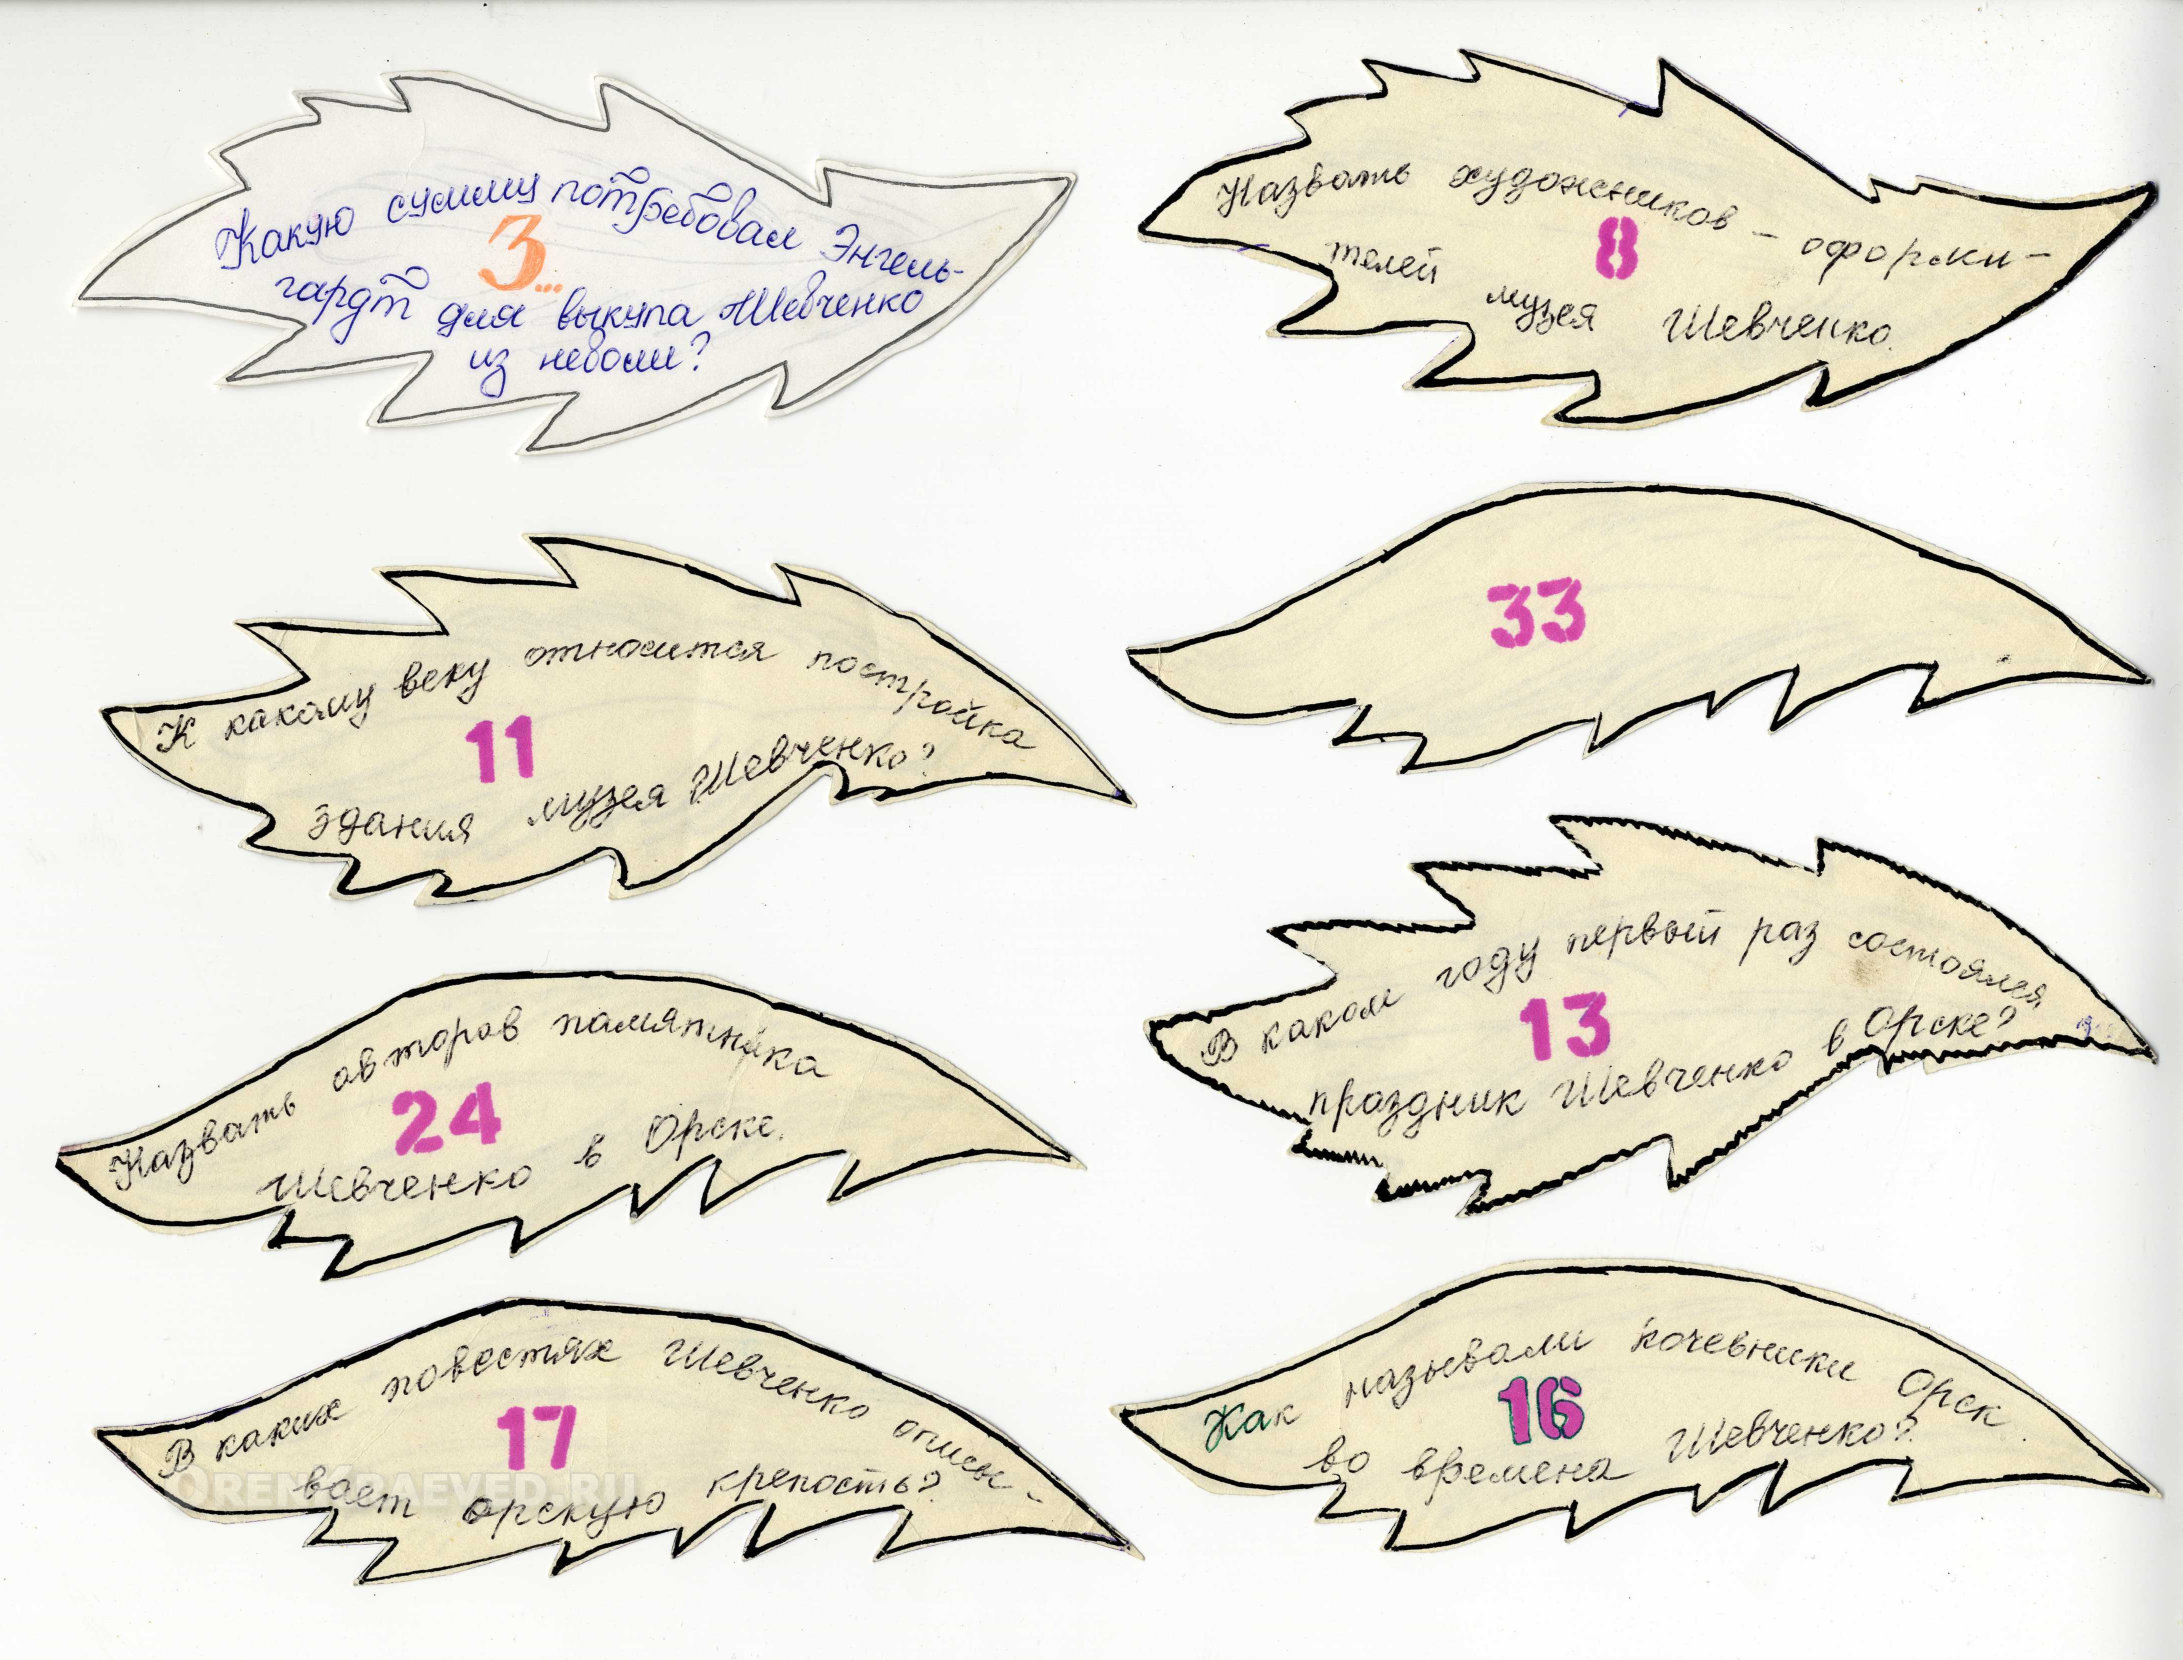 Какую сумму потребовал Энгель-
3...
гардт для выкупа Шевченко
из неволи?
Назвать художников - оформи-
8
телей музея Шевченко.
К какому веку относится постройка
11
здания музея Шевченко?
33
В каком году первый раз состоялся
13
праздник Шевченко в Орске?
Назвать авторов памятника
24
Шевченко в Орске.
В каких повестях Шевченко описы-
17
вает орскую крепость?
ORENKRAEVED.RU
Как называли кочевники Орск
16
во времена Шевченко?